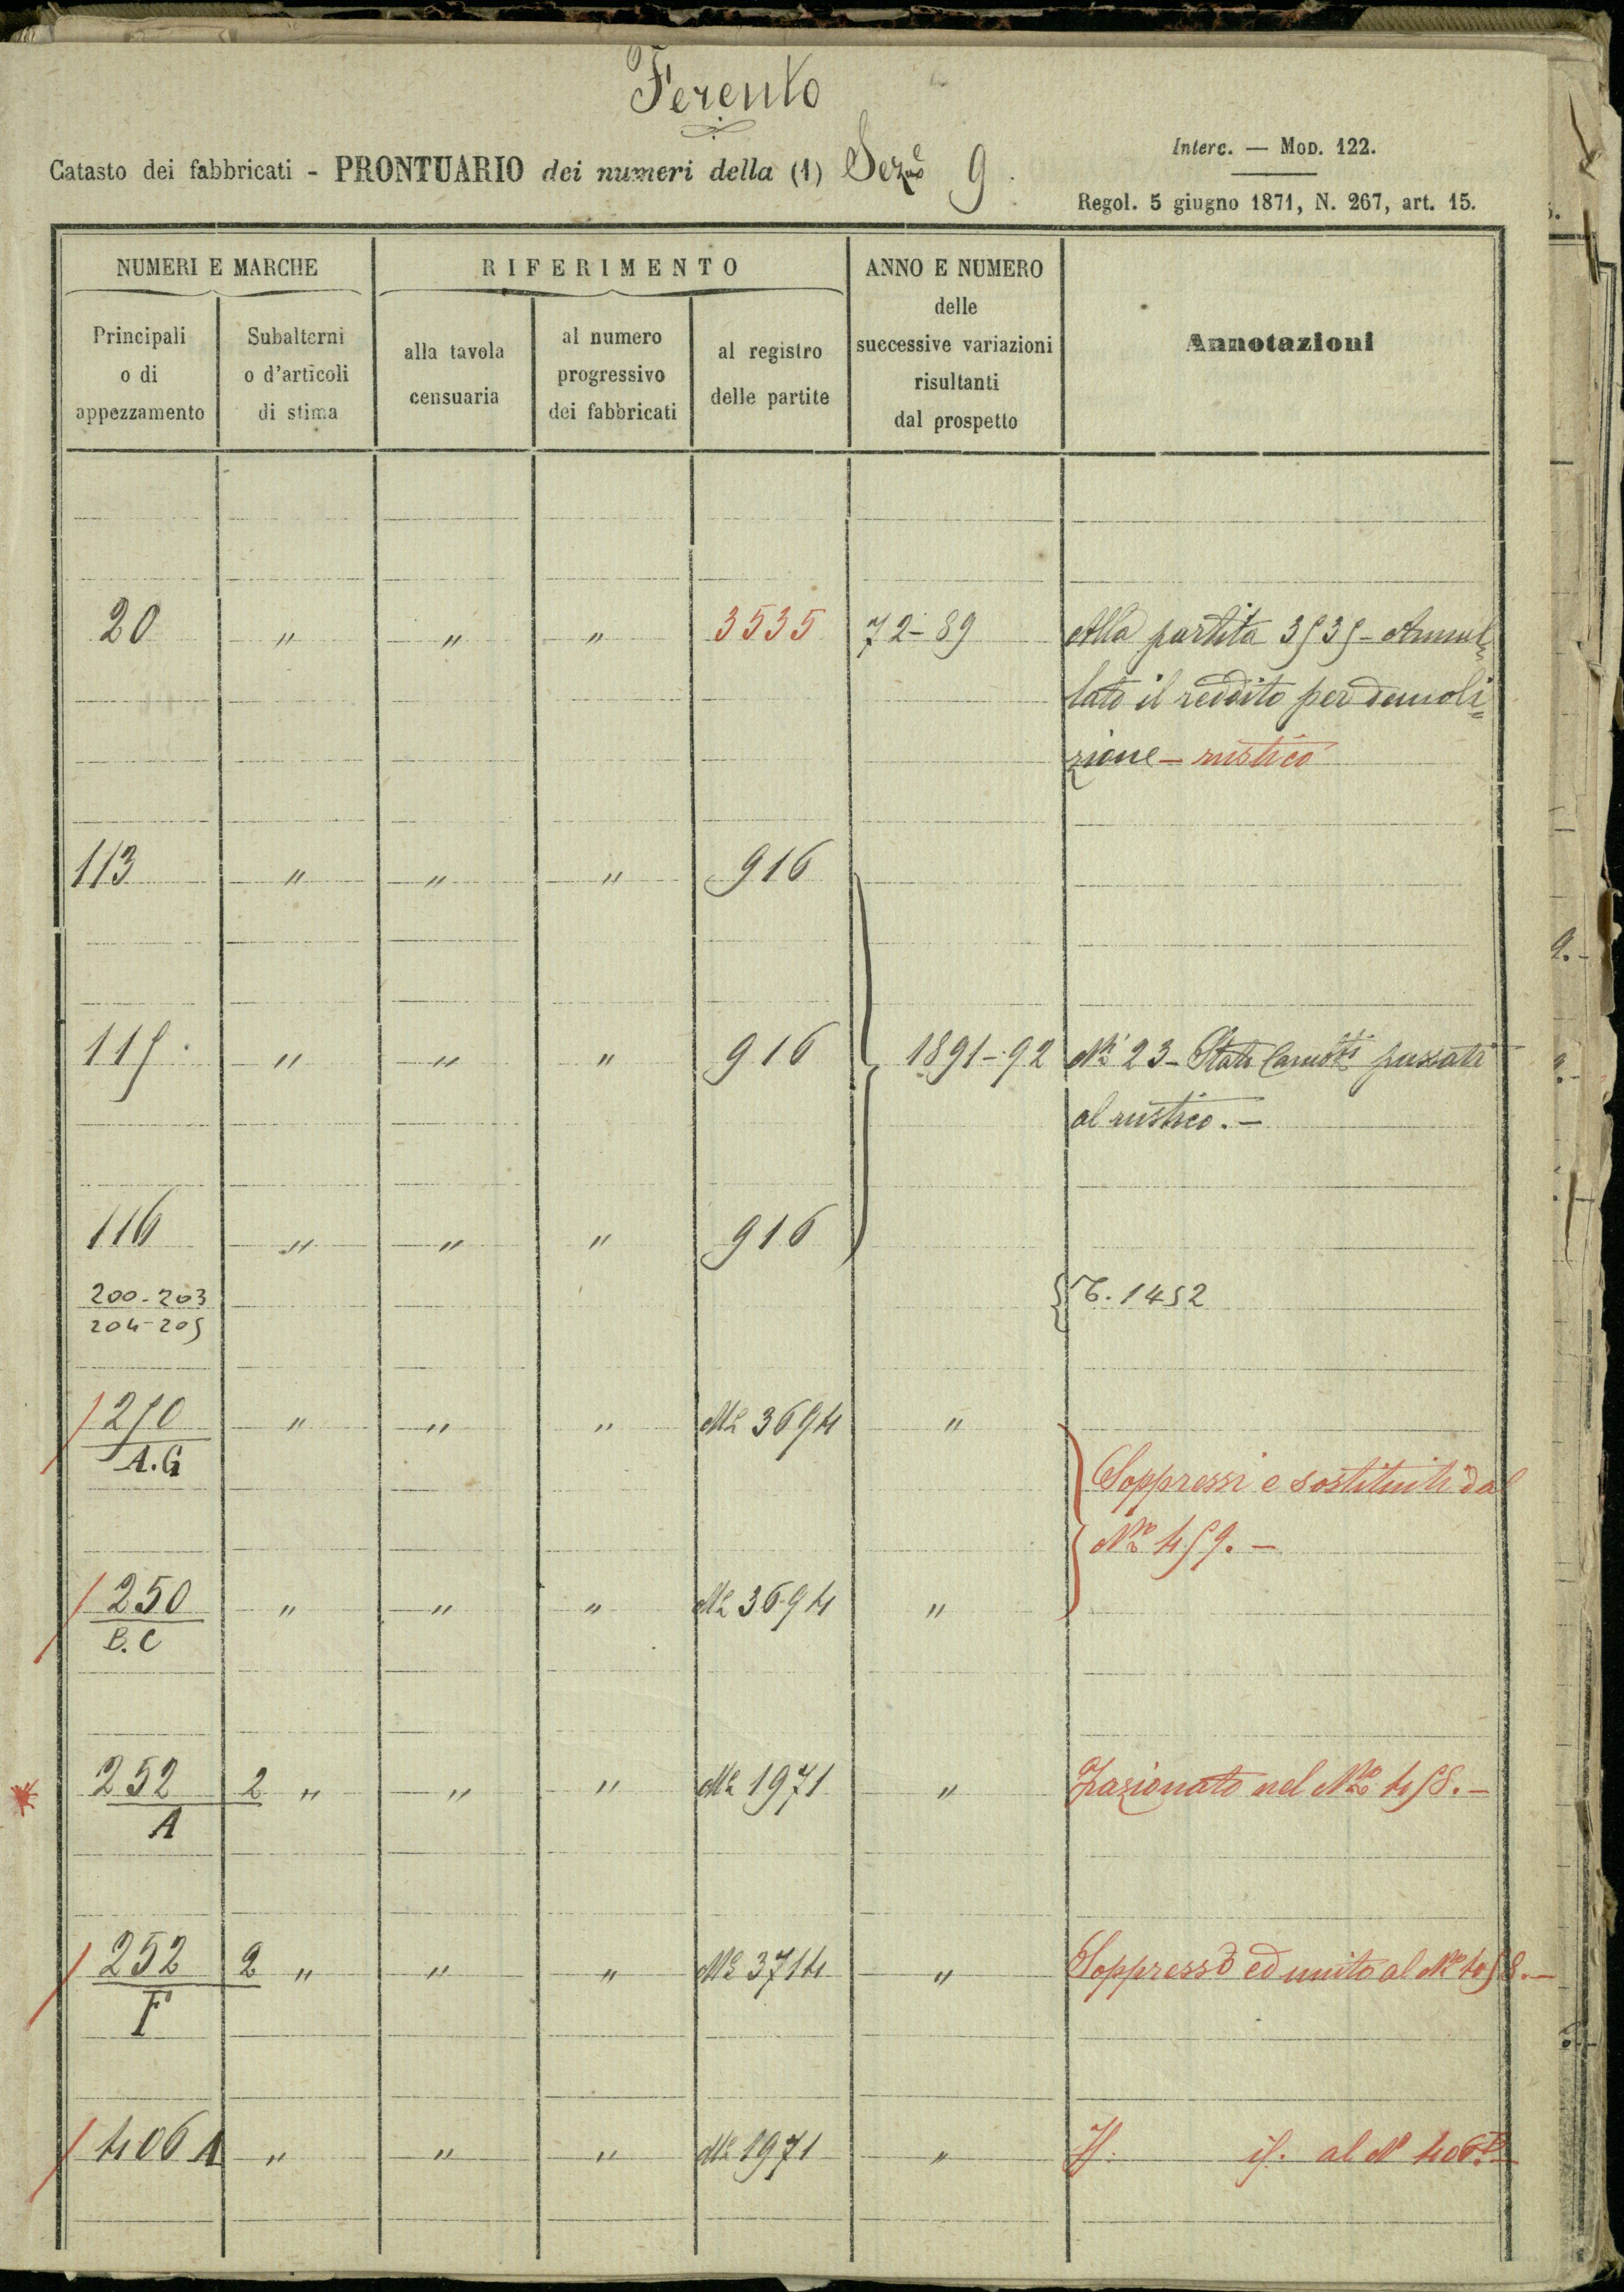 Ferento
Catasto dei fabbricati - PRONTUARIO dei numeri della (1) Sez.ne 9.
Interc. — Mod. 122.
Regol. 5 giugno 1871, N. 267, art. 15.
NUMERI E MARCHE
RIFERIMENTO
ANNO E NUMERO
delle
successive variazioni
risultanti
dal prospetto
Annotazioni
Principali
o di
appezzamento
Subalterni
o d'articoli
di stima
alla tavola
censuaria
al numero
progressivo
dei fabbricati
al registro
delle partite
20 " " " 3535 72-89 Alla partita 3535 - Annul=
lato il reddito per demoli=
zione - rustico
113 " " " 916
115. " " " 916 1891-92 Nº 23 - Stati passati
al rustico. -
116 " " " 916
200-203
204-205
1452
250 " " " Nº 3694 "
A.G
Soppressi e sostituiti dal
Nº 459. -
250 " " " Nº 3694 "
B.C
252 2 " " " Nº 1971 " Frazionato nel Nº 458. -
A
252 2 " " " Nº 3714 " Soppresso ed unito al Nº 458. -
F
406 A " " " Nº 1971 " al Nº 406